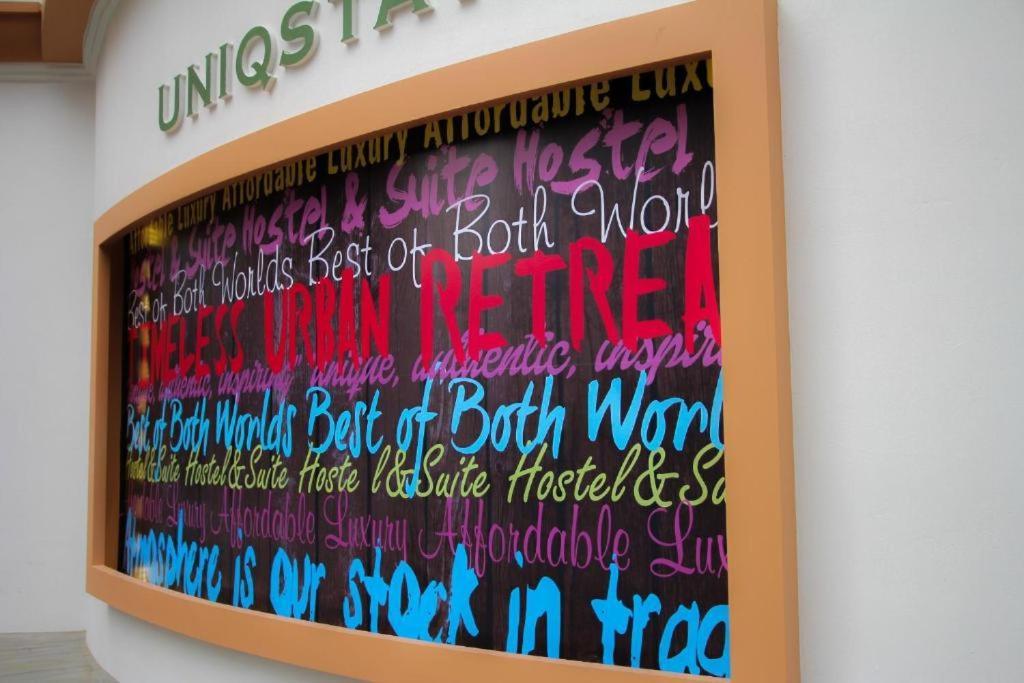 UNIQSTA
Affordable Luxury Affordable Luxury Affordable Luxu
Hostel & Suite Hostel & Suite Hostel
Best of Both Worlds Best of Both Worl
TIMELESS URBAN RETREA
authentic, inspiring" unique, authentic, inspirin
Best of Both Worlds Best of Both Worl
Hostel&Suite Hostel&Suite Hoste l&Suite Hostel&Su
Luxury Affordable Luxury Affordable Lux
Atmosphere is our stock in trad